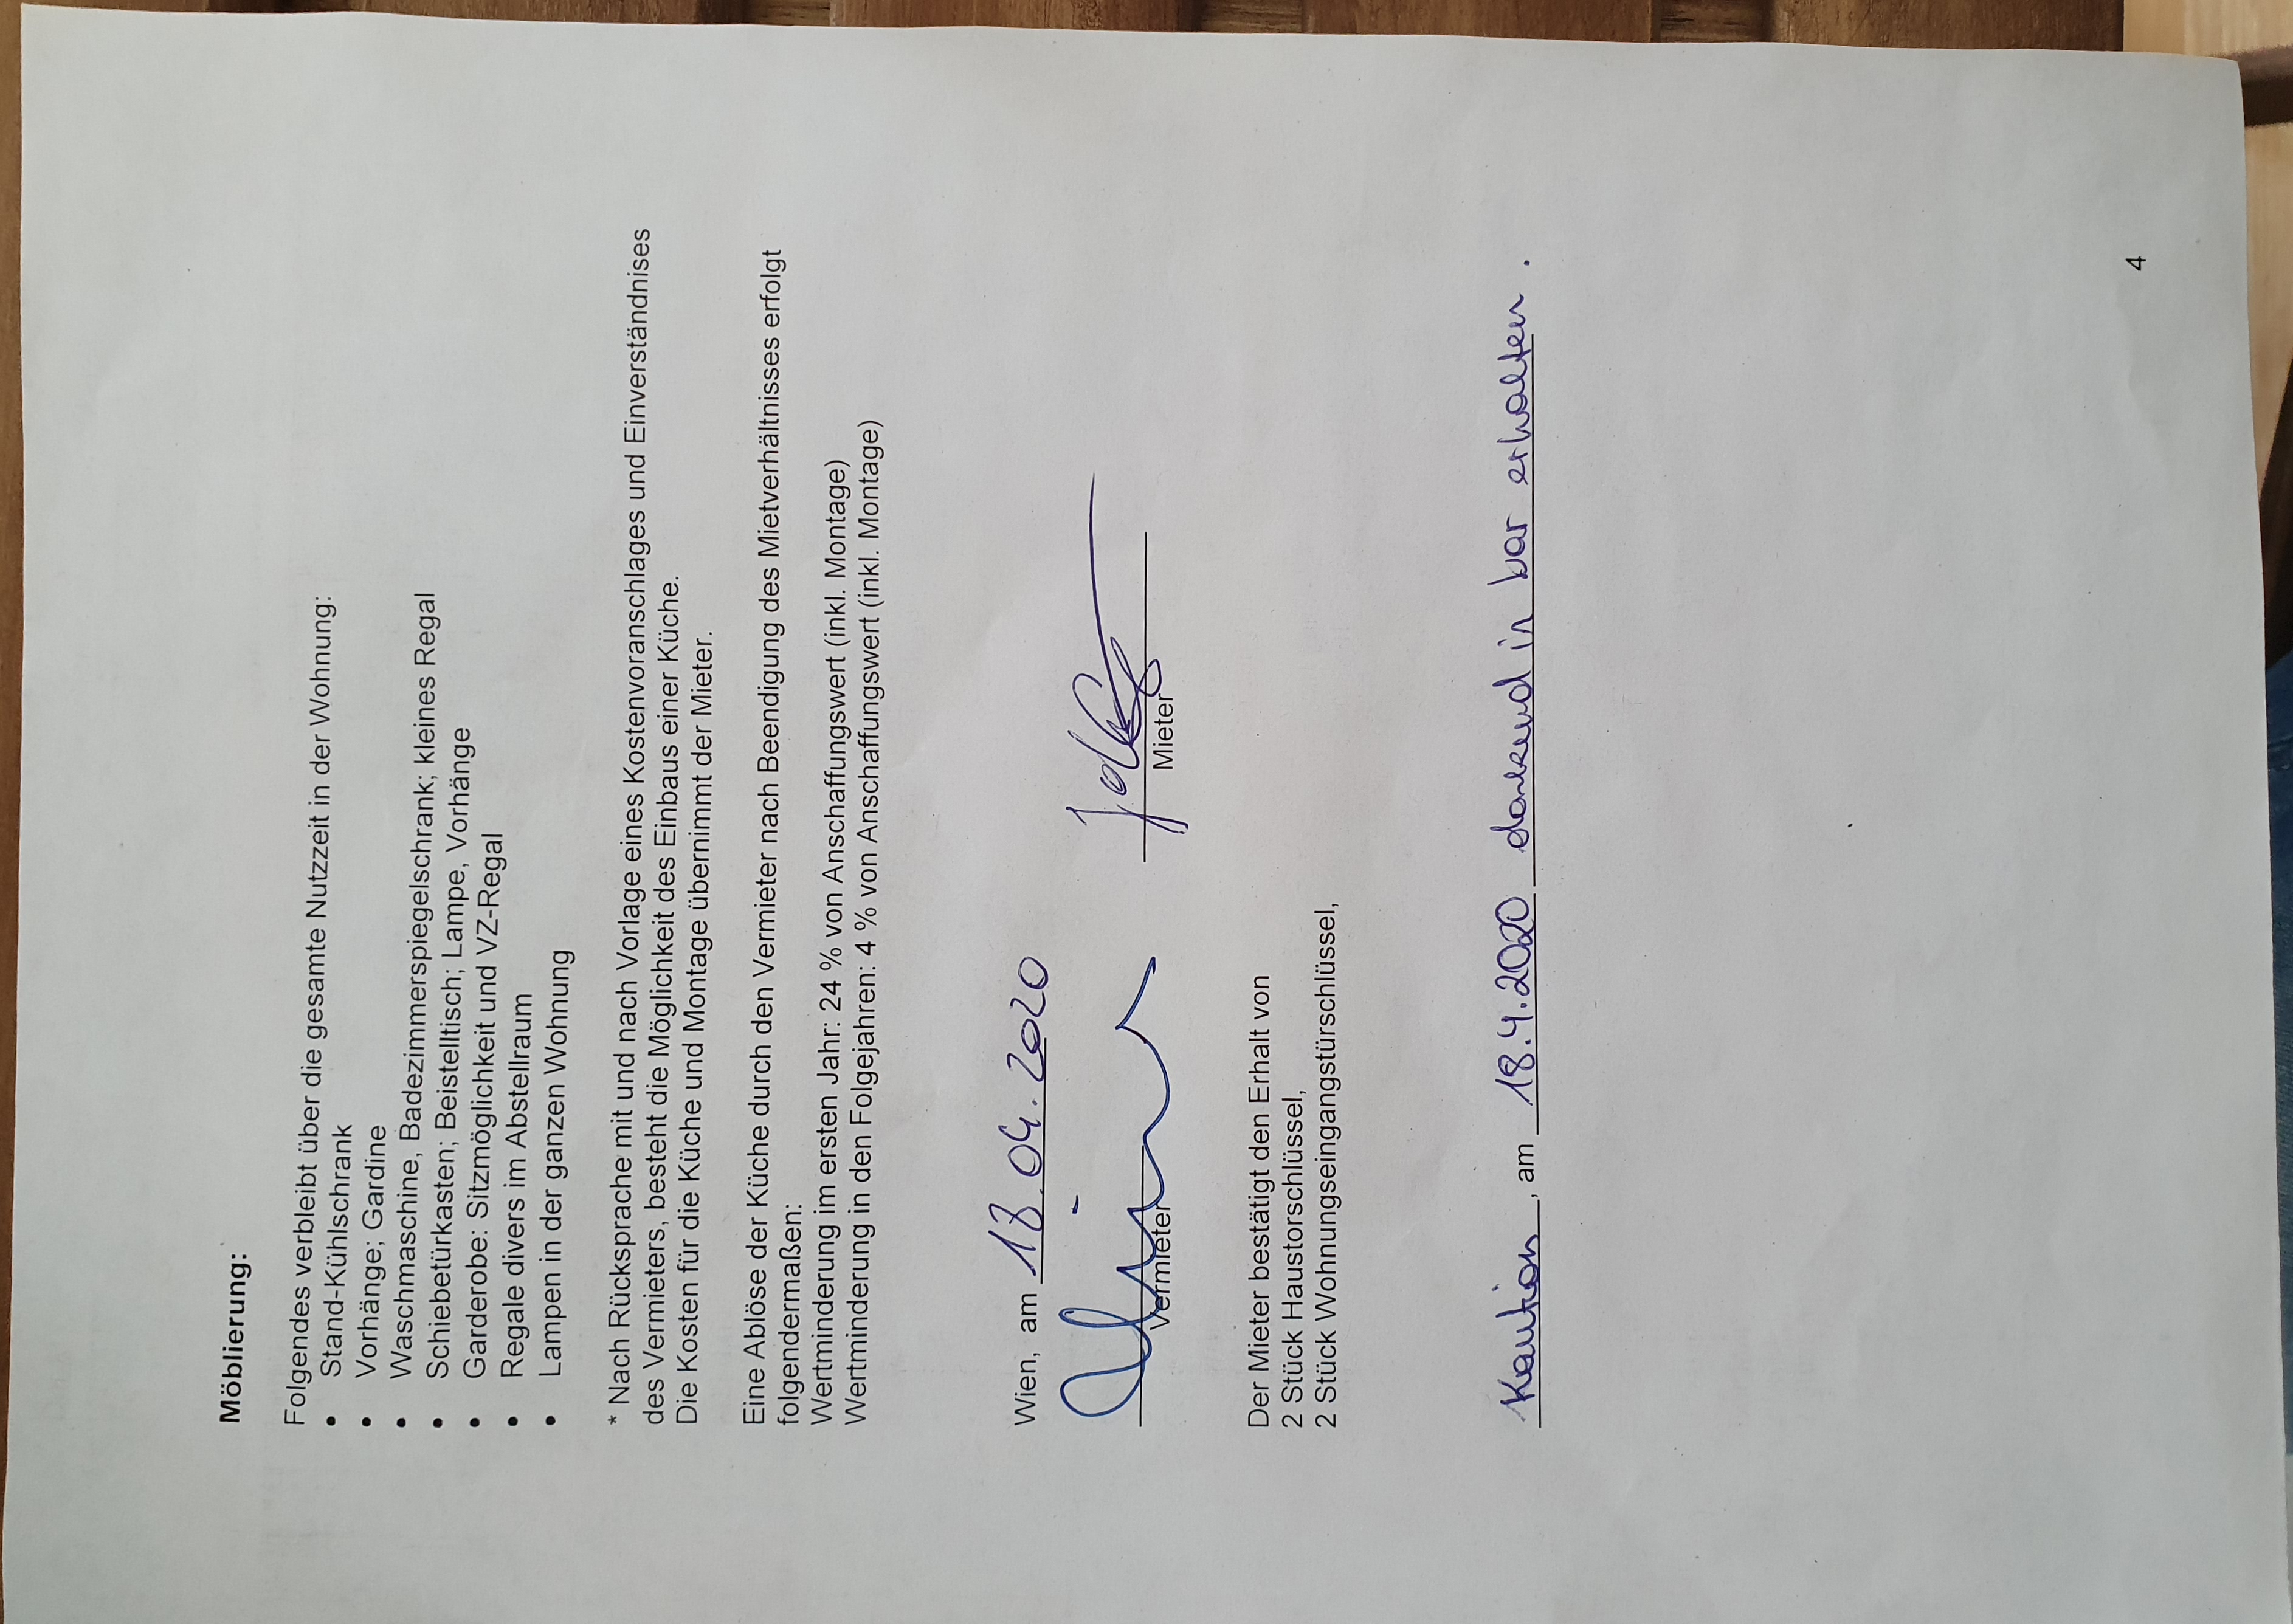 Möblierung:
Folgendes verbleibt über die gesamte Nutzzeit in der Wohnung:
• Stand-Kühlschrank
• Vorhänge; Gardine
• Waschmaschine, Badezimmerspiegelschrank; kleines Regal
• Schiebetürkasten; Beistelltisch; Lampe, Vorhänge
• Garderobe: Sitzmöglichkeit und VZ-Regal
• Regale divers im Abstellraum
• Lampen in der ganzen Wohnung
* Nach Rücksprache mit und nach Vorlage eines Kostenvoranschlages und Einverständnises
des Vermieters, besteht die Möglichkeit des Einbaus einer Küche.
Die Kosten für die Küche und Montage übernimmt der Mieter.
Eine Ablöse der Küche durch den Vermieter nach Beendigung des Mietverhältnisses erfolgt
folgendermaßen:
Wertminderung im ersten Jahr: 24 % von Anschaffungswert (inkl. Montage)
Wertminderung in den Folgejahren: 4 % von Anschaffungswert (inkl. Montage)
Wien, am 18.04.2020
Vermieter Mieter
Der Mieter bestätigt den Erhalt von
2 Stück Haustorschlüssel,
2 Stück Wohnungseingangstürschlüssel,
Kaution, am 18.4.2020 dankend in bar erhalten.
4